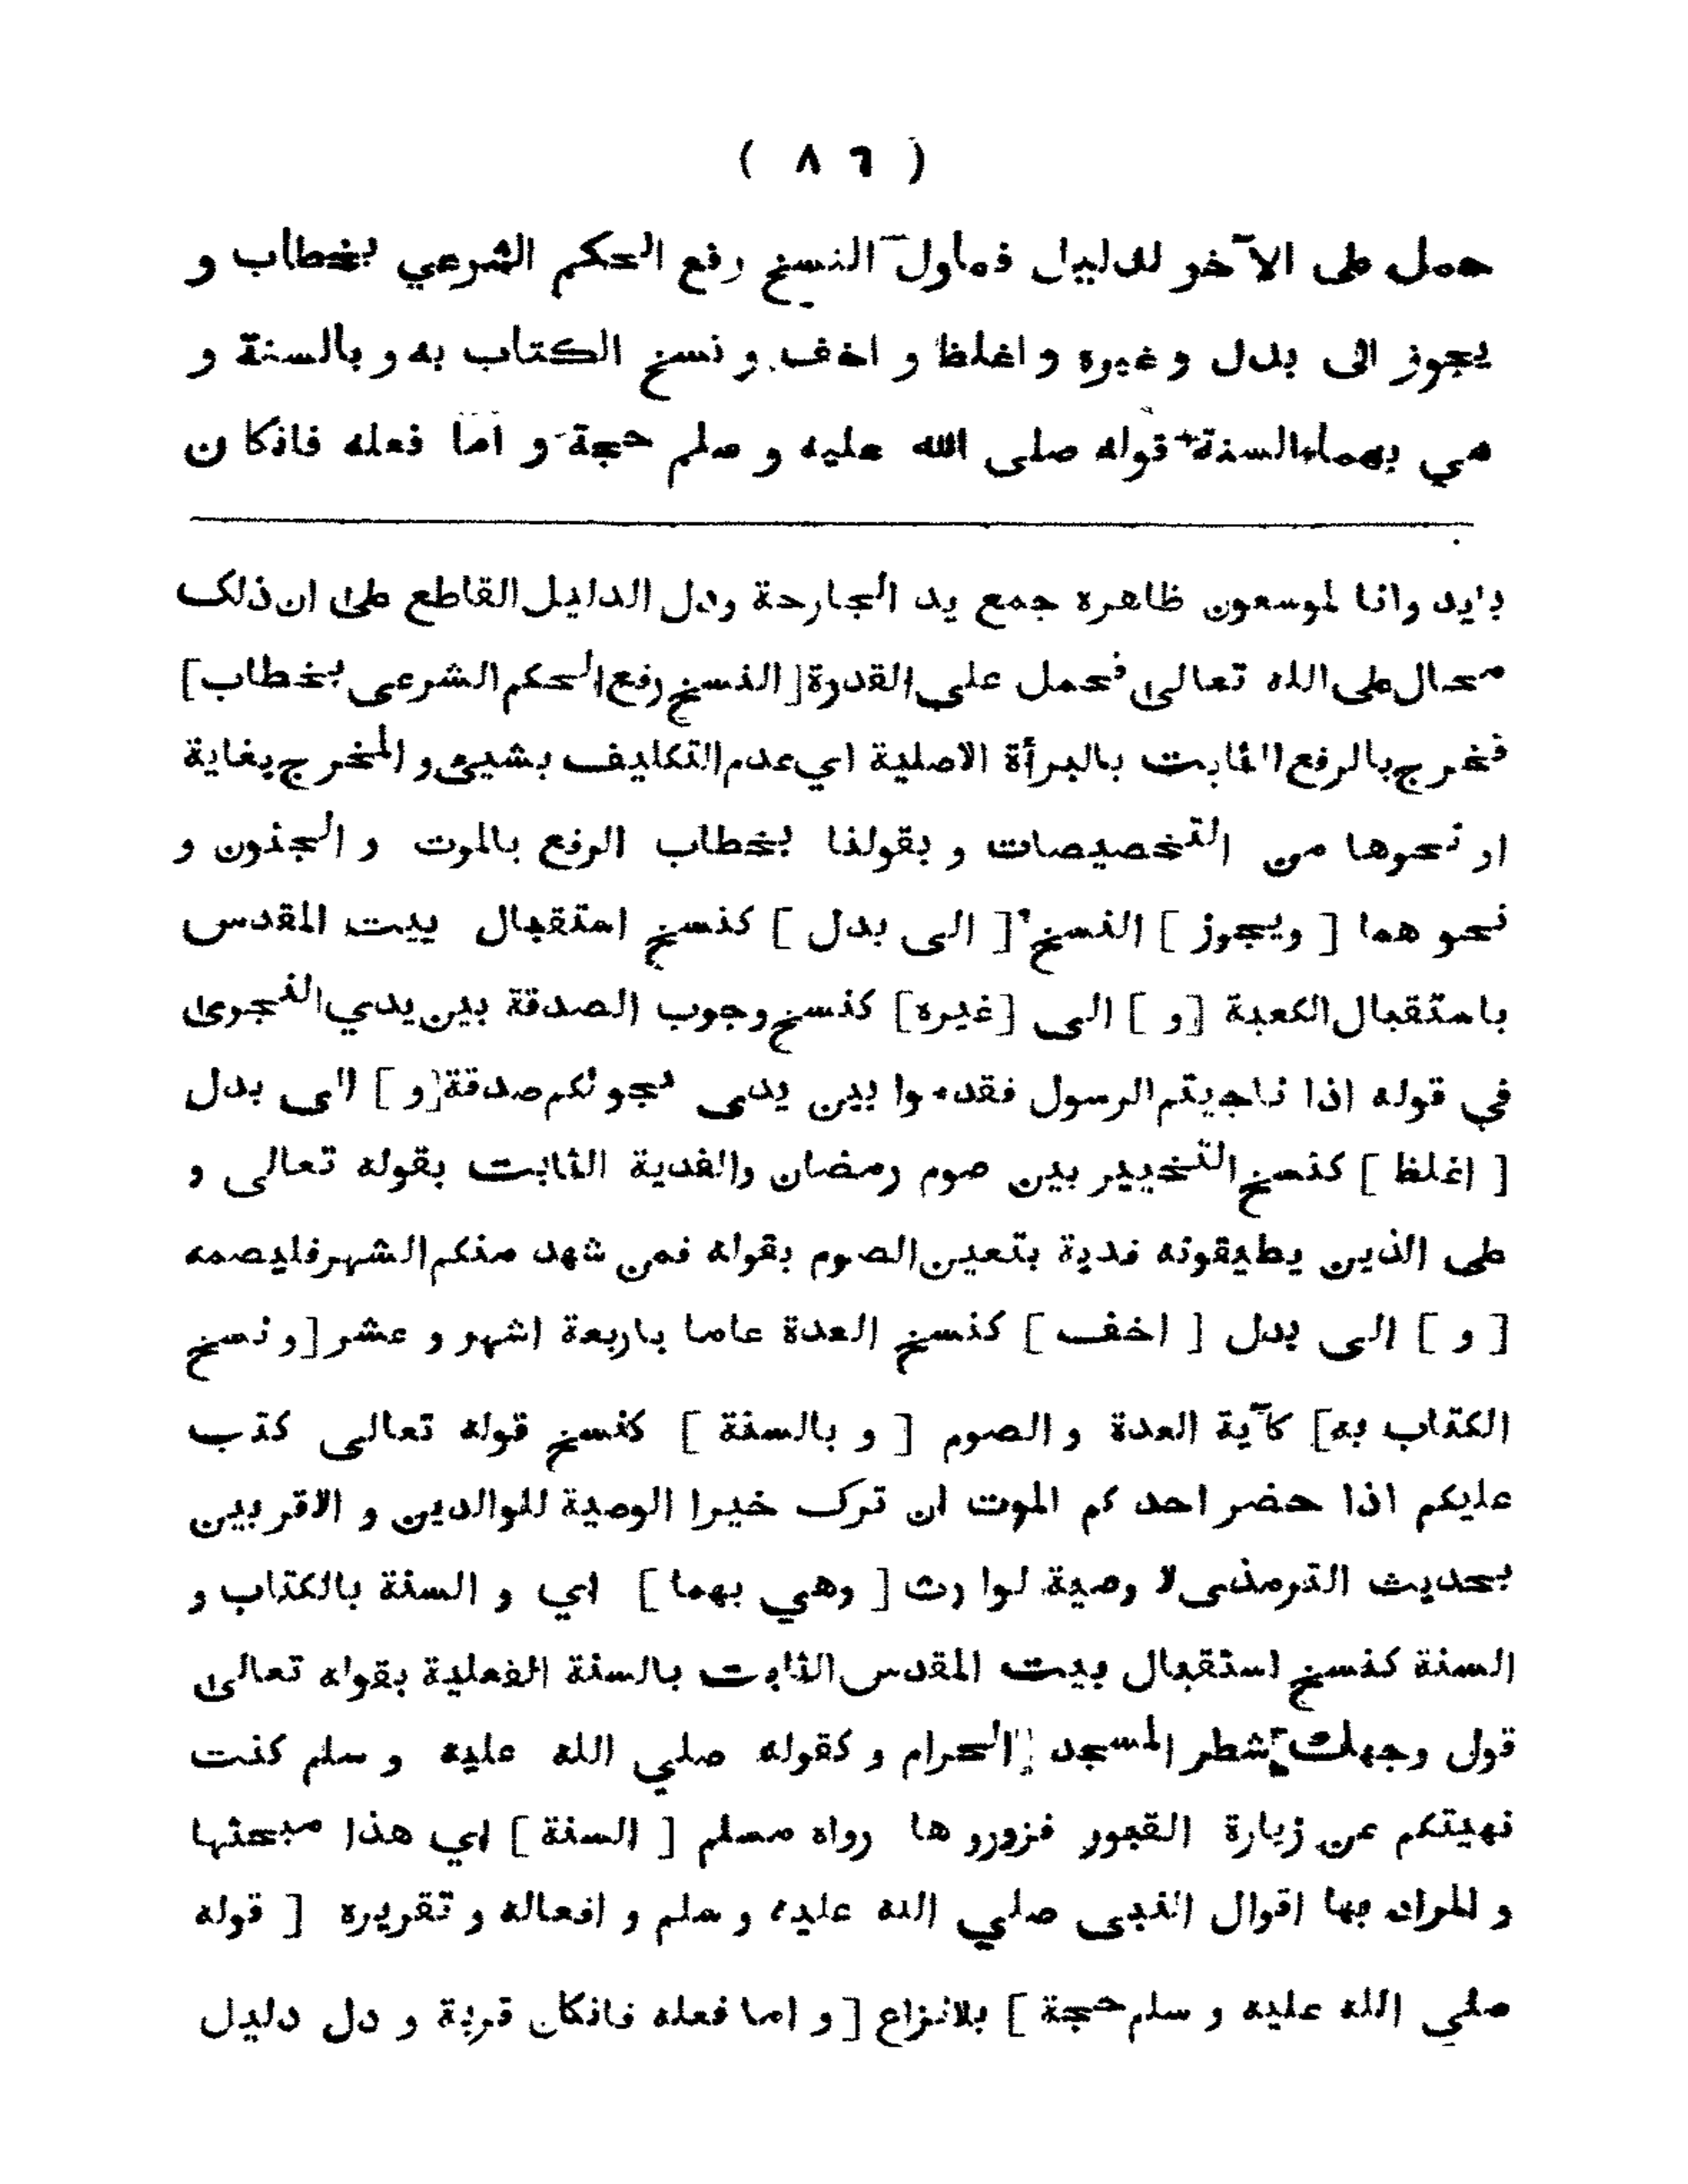 ( ٨٦ )
حمل على الآخر للدليل فمأول النسخ رفع الحكم الشرعي بخطاب و
يجوز الى بدل و غيره و اغلظ و اخف و نسخ الكتاب به و بالسنة و
هي بهما السنة قوله صلى الله عليه و سلم حجة و اما فعله فانكان
بايد وانا لموسعون ظاهره جمع يد الجارحة ودل الدليل القاطع على ان ذلك
محال على الله تعالى فحمل على القدرة [ النسخ رفع الحكم الشرعى بخطاب ]
فخرج بالرفع الثابت بالبرأة الاصلية اي عدم التكليف بشيئ و المخرج بغاية
او نحوها من التخصيصات و بقولنا بخطاب الرفع بالموت و الجنون و
نحو هما [ ويجوز ] النسخ [ الى بدل ] كنسخ استقبال بيت المقدس
باستقبال الكعبة [ و ] الى [ غيره ] كنسخ وجوب الصدقة بين يدي النجوى
في قوله اذا ناجيتم الرسول فقدموا بين يدى نجوىكم صدقة [ و ] الى بدل
[ اغلظ ] كنسخ التخيير بين صوم رمضان والفدية الثابت بقوله تعالى و
على الذين يطيقونه فدية بتعين الصوم بقوله فمن شهد منكم الشهر فليصمه
[ و ] الى بدل [ اخف ] كنسخ العدة عاما باربعة اشهر و عشر [ و نسخ
الكتاب به ] كآية العدة و الصوم [ و بالسنة ] كنسخ قوله تعالى كتب
عليكم اذا حضر احد كم الموت ان ترك خيرا الوصية للوالدين و الاقربين
بحديث الترمذى لا وصية لوارث [ وهي بهما ] اي و السنة بالكتاب و
السنة كنسخ استقبال بيت المقدس الثابت بالسنة الفعلية بقوله تعالى
فول وجهك شطر المسجد الحرام و كقوله صلي الله عليه و سلم كنت
نهيتكم عن زيارة القبور فزورو ها رواه مسلم [ السنة ] اي هذا مبحثها
و المراد بها اقوال النبى صلي الله عليه و سلم و افعاله و تقريره [ قوله
صلي الله عليه و سلم حجة ] بلانزاع [ و اما فعله فانكان قربة و دل دليل